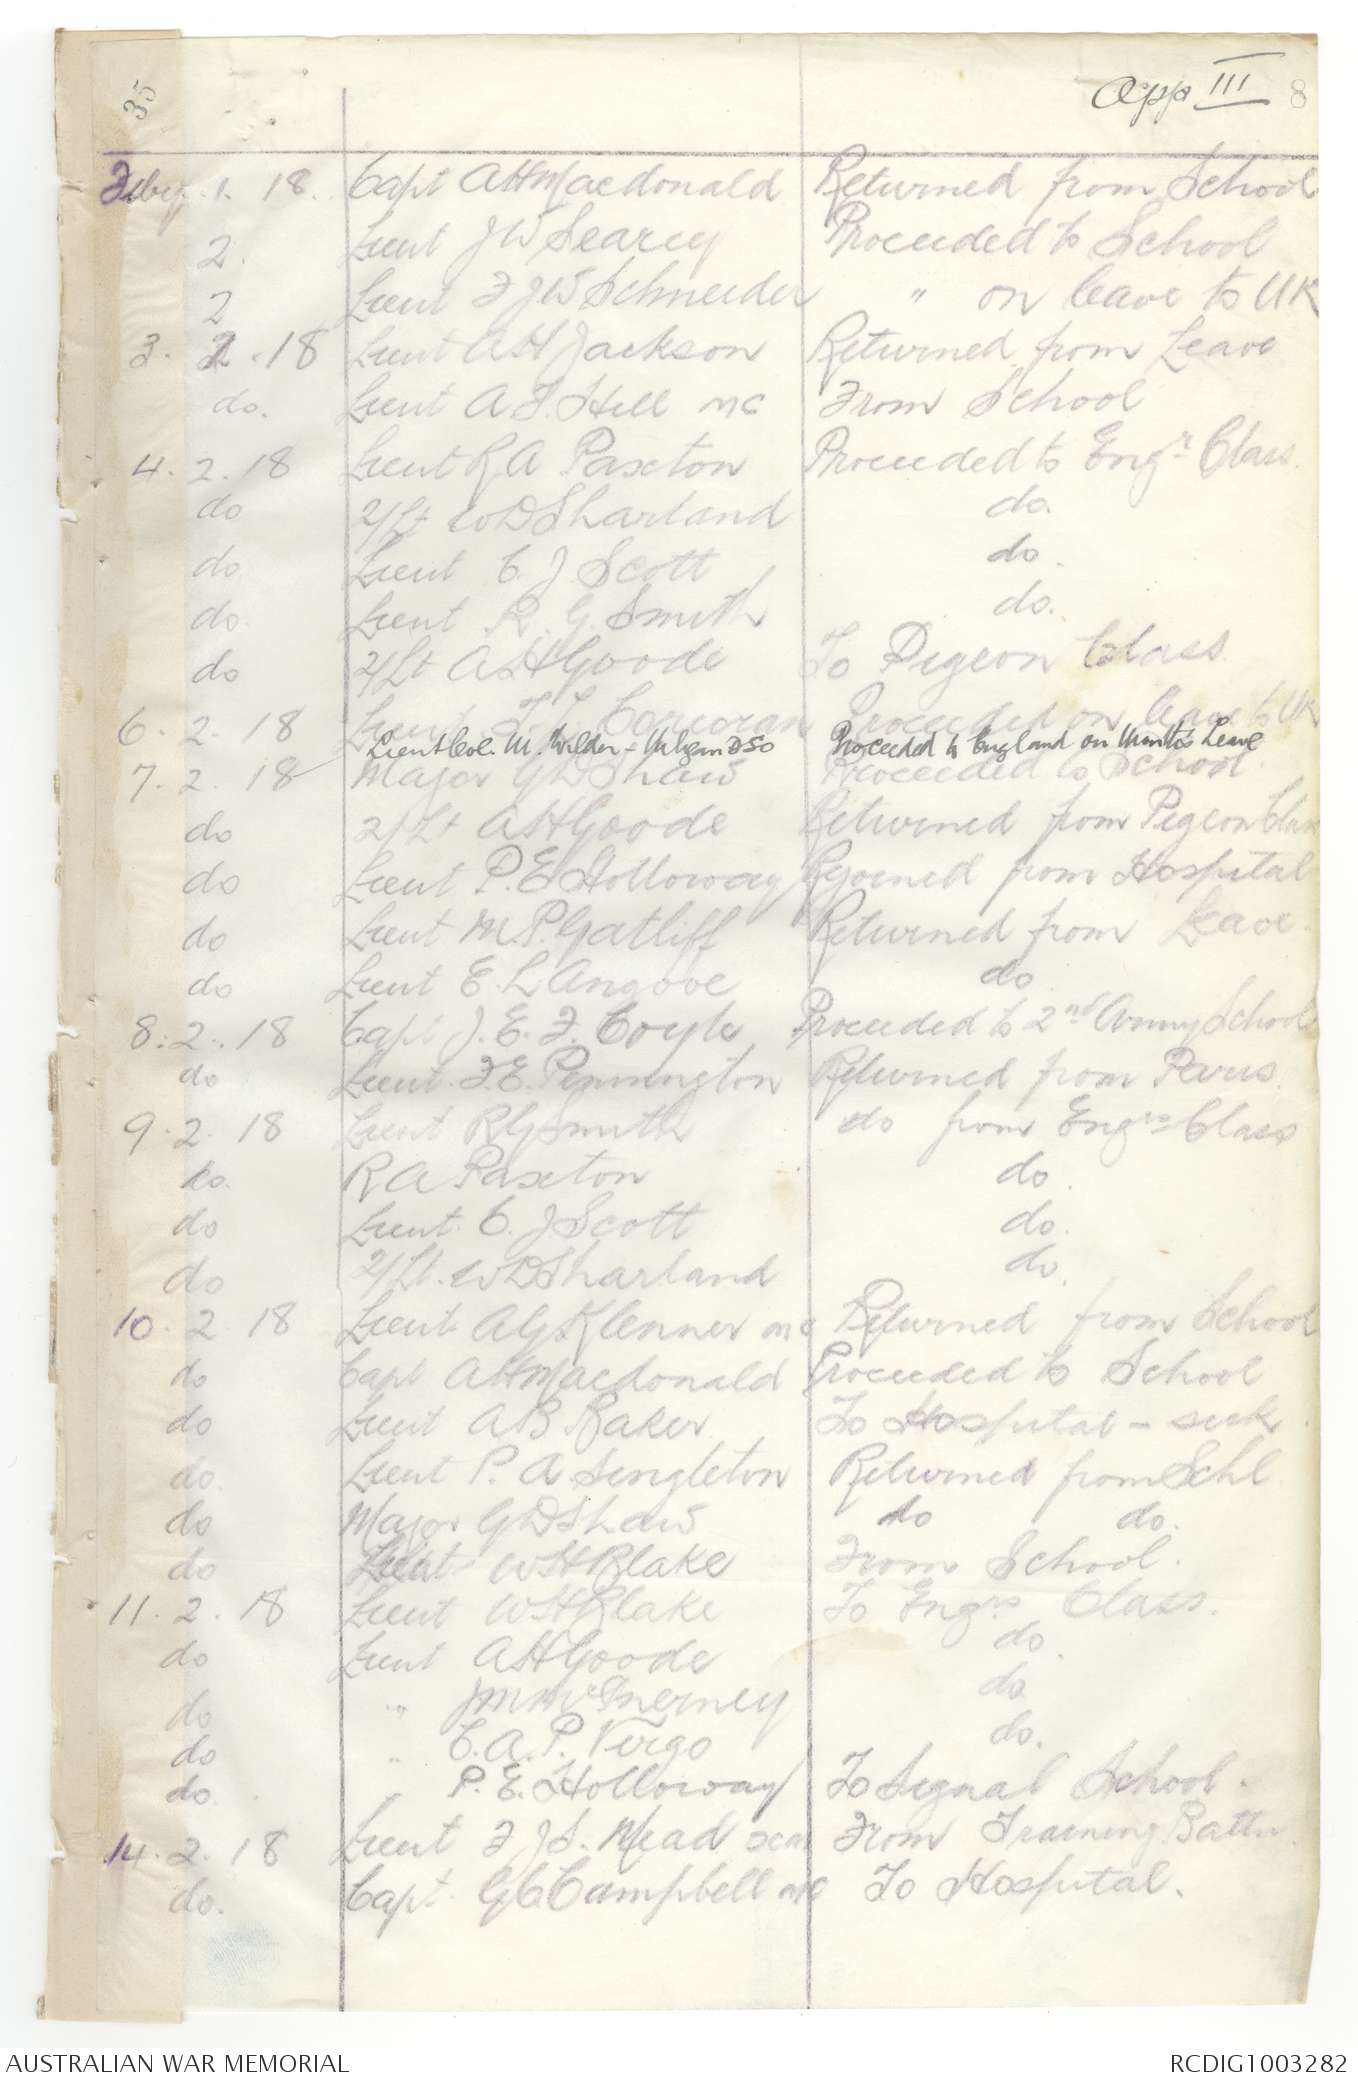 35
App III 8
Feby. 1. 18. Capt A H Macdonald Returned from School
2. Lieut J W Searcy Proceeded to School
2 Lieut F J W Schneider " on leave to UK
3. 2. 18 Lieut A H Jackson Returned from Leave
do. Lieut A F. Hill MC From School
4. 2. 18 Lieut R A Paxton Proceeded to Engr Class.
do 2/Lt W D Sharland do.
do Lieut C. J. Scott do.
do. Lieut R. G. Smith do.
do 2/Lt A H Goode To Pigeon Class.
6. 2. 18 Lieut Corcoran Proceeded on leave to UK
Lieut Col. M. Wilder-Neligan DSO Proceeded to England on Months Leave
7. 2. 18 Major G D Shaw Proceeded to School.
do 2/Lt A H Goode Returned from Pigeon Class
do Lieut P. E. Holloway Rejoined from Hospital
do Lieut M. P. Gatliff Returned from Leave.
do Lieut E. L. Angove do
8. 2. 18 Capt J. E. F. Coyle Proceeded to 2nd Army School
do Lieut. F. E. Pennington Returned from Paris.
9. 2. 18 Lieut R G Smith do from Engrs Class
do. R A Paxton do.
do Lieut. C. J Scott do.
do 2/Lt. W D Sharland do.
10. 2 18 Lieut A G Klenner MC Returned from School
do Capt A H Macdonald Proceeded to School
do Lieut A B Baker To Hospital - sick.
do. Lieut P. A Singleton Returned from Schl
do Major G D Shaw do do.
do Lieut W H Blake From School.
11. 2. 18 Lieut W H Blake To Engrs Class.
do Lieut A H Goode do.
do " J M McInerney do
do " C. A. P. Virgo do.
do. " P. E. Holloway To Signal School.
14. 2. 18 Lieut F J S. Mead DCM From Training Battn.
do. Capt. G C Campbell MC To Hospital.
AUSTRALIAN WAR MEMORIAL RCDIG1003282